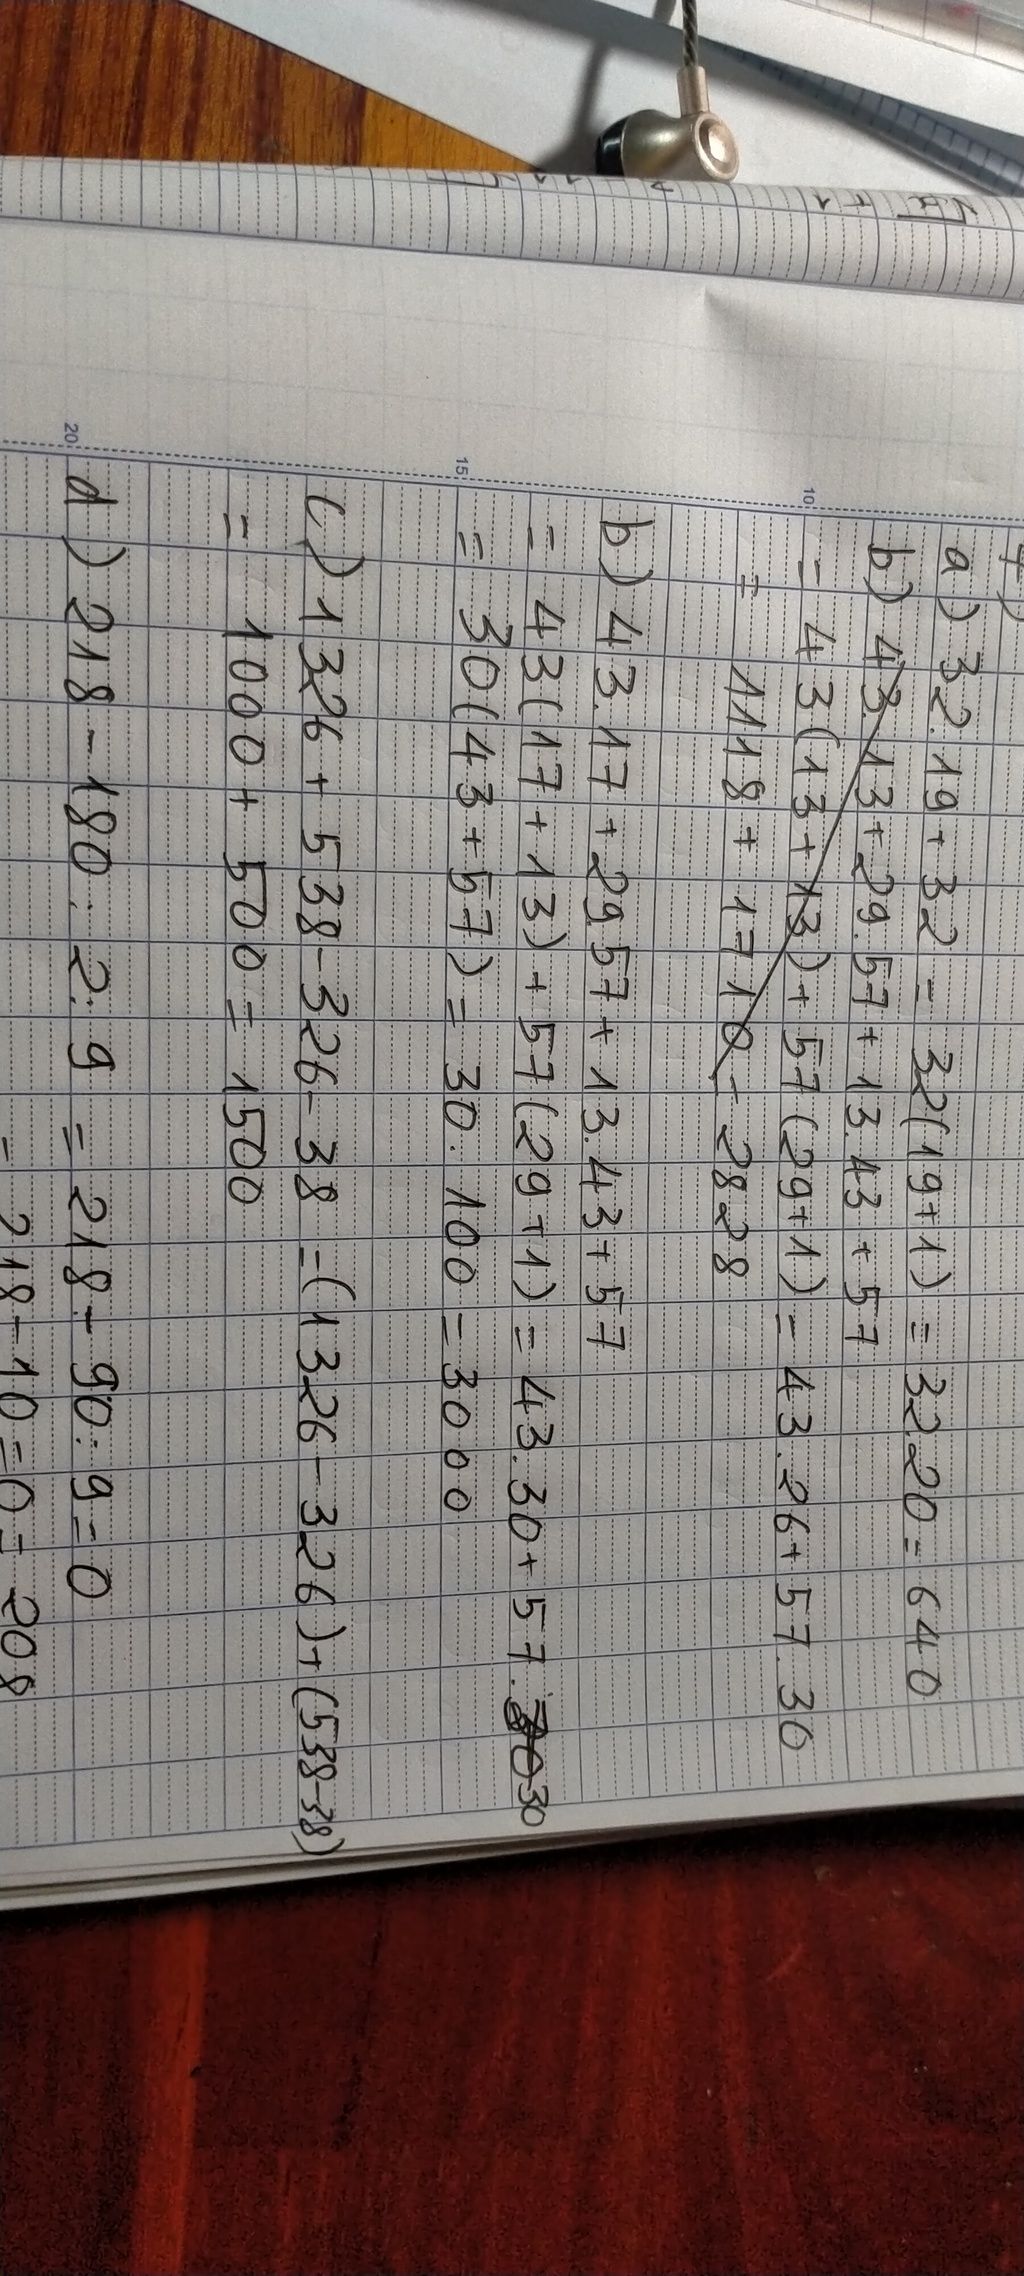 a) 32.19+32 = 32(19+1) = 32.20=640
b) 43.13+29.57+13.43+57
= 43(13+13)+57(29+1)= 43.26+57.30
= 1118+1710=2828
b) 43.17+29.57+13.43+57
= 43(17+13)+57(29+1)= 43.30+57.30
= 30(43+57)= 30.100=3000
c) 1326+538-326-38 =(1326-326)+(538-38)
= 1000+500=1500
d) 218-180:2:9 = 218-90:9=0
= 218-10=0=208
10
15
20